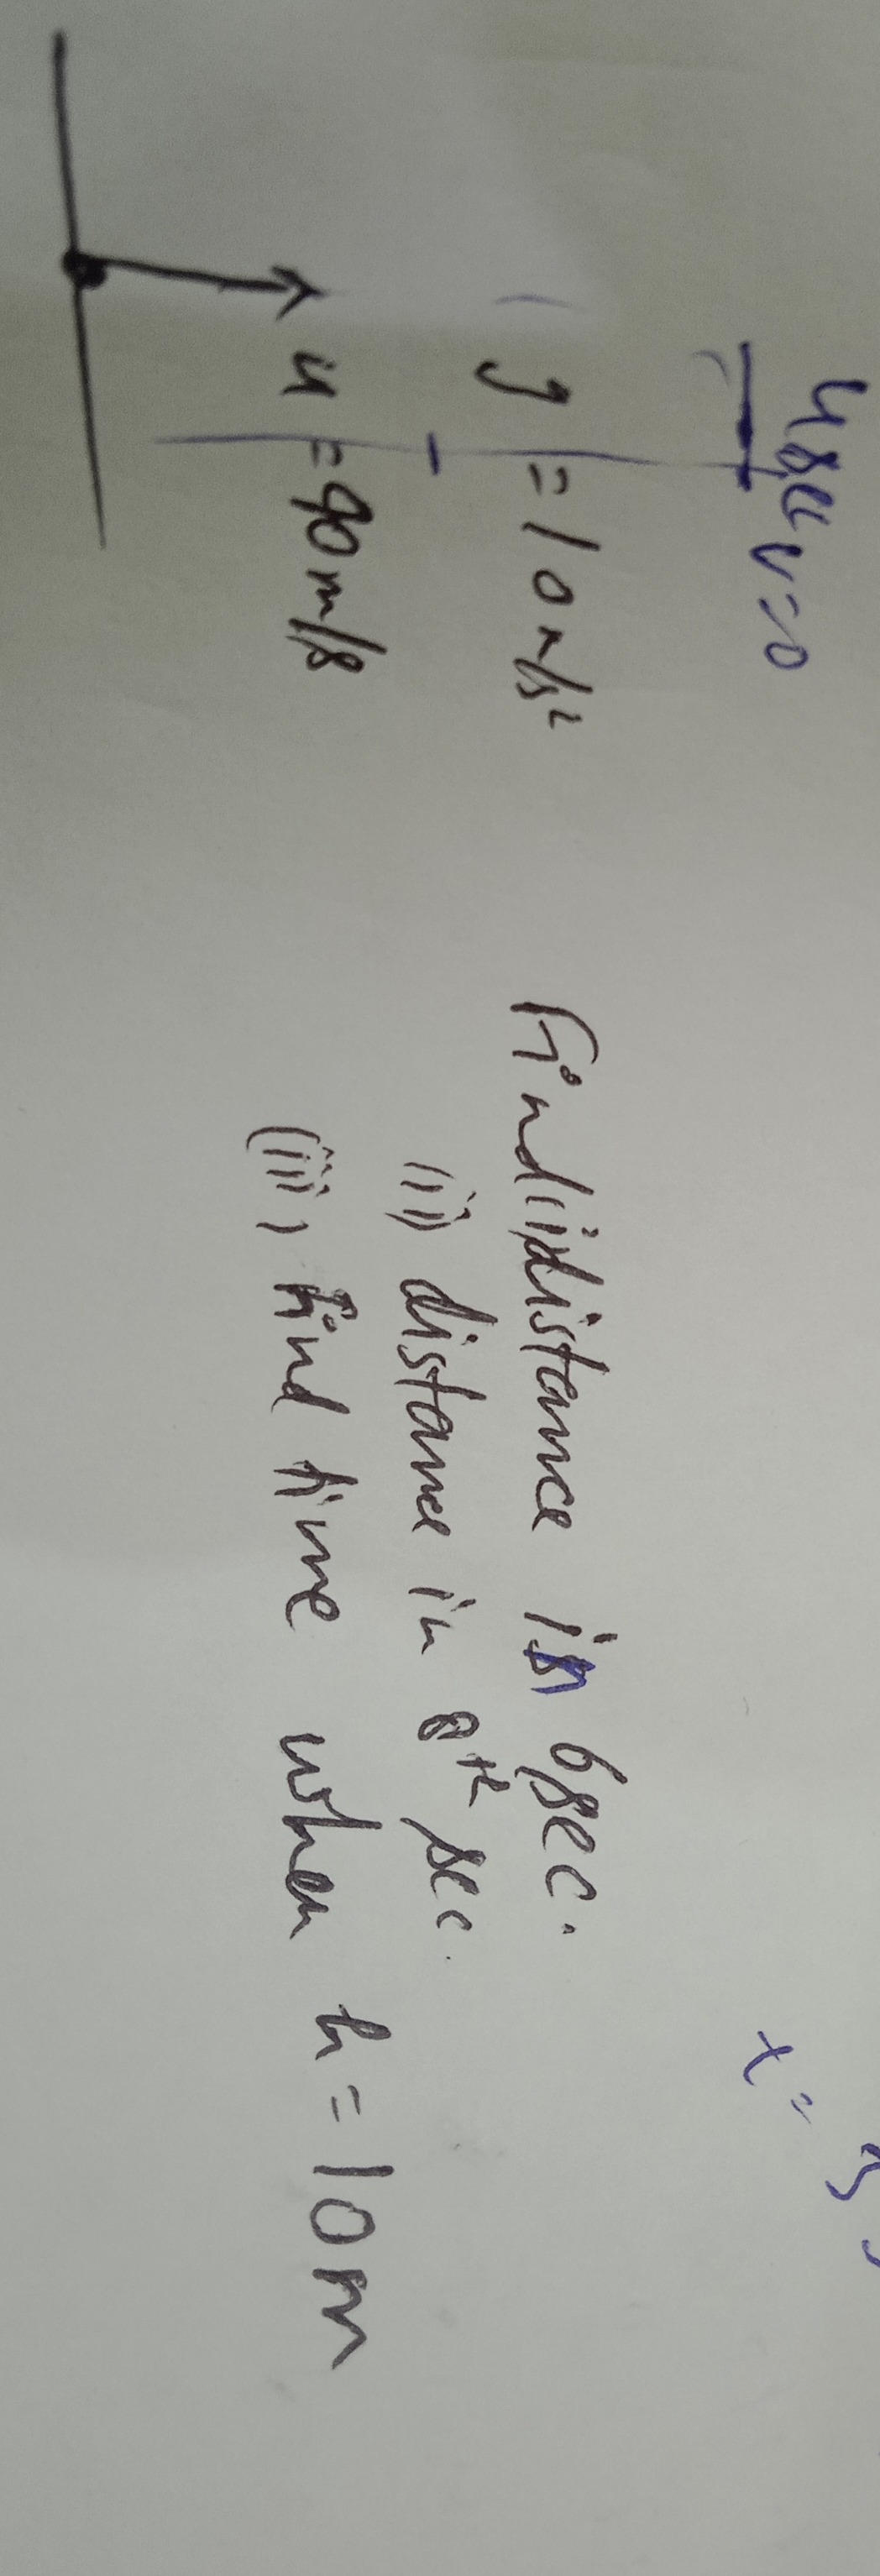 4sec v=0
x =
g = 10 m/s²
Find (i) distance in 6sec.
(ii) distance in 8th sec.
u = 40 m/s
(iii) find time when h = 10m